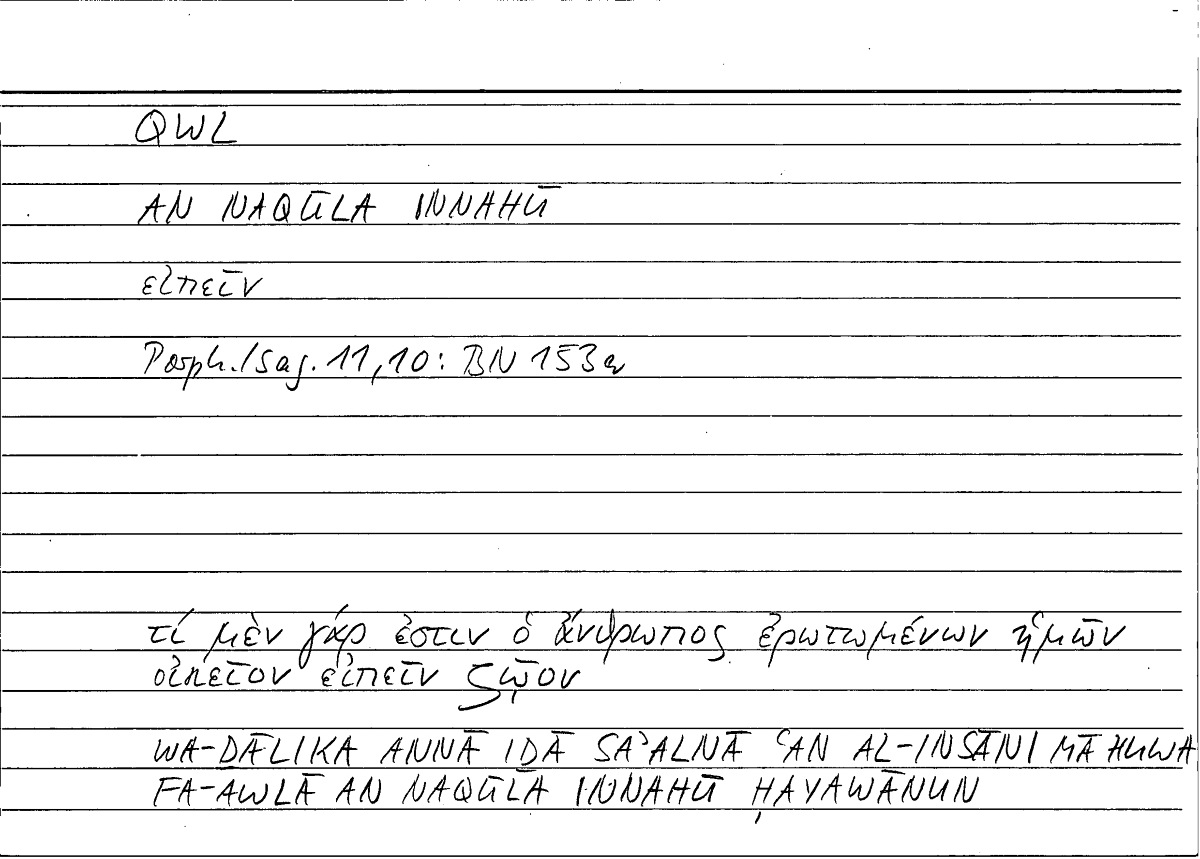 QWL
AN NAQŪLA INNAHŪ
εἰπεῖν
Porph./Isag. 11,10: BN 153a
τί μὲν γάρ ἐστιν ὁ ἄνθρωπος ἐρωτωμένων ἡμῶν
οἰκεῖον εἰπεῖν ζῷον
WA-ḎĀLIKA ANNĀ IḎĀ SAʾALNĀ ʿAN AL-INSĀNI MĀ HUWA
FA-AWLĀ AN NAQŪLA INNAHŪ ḤAYAWĀNUN